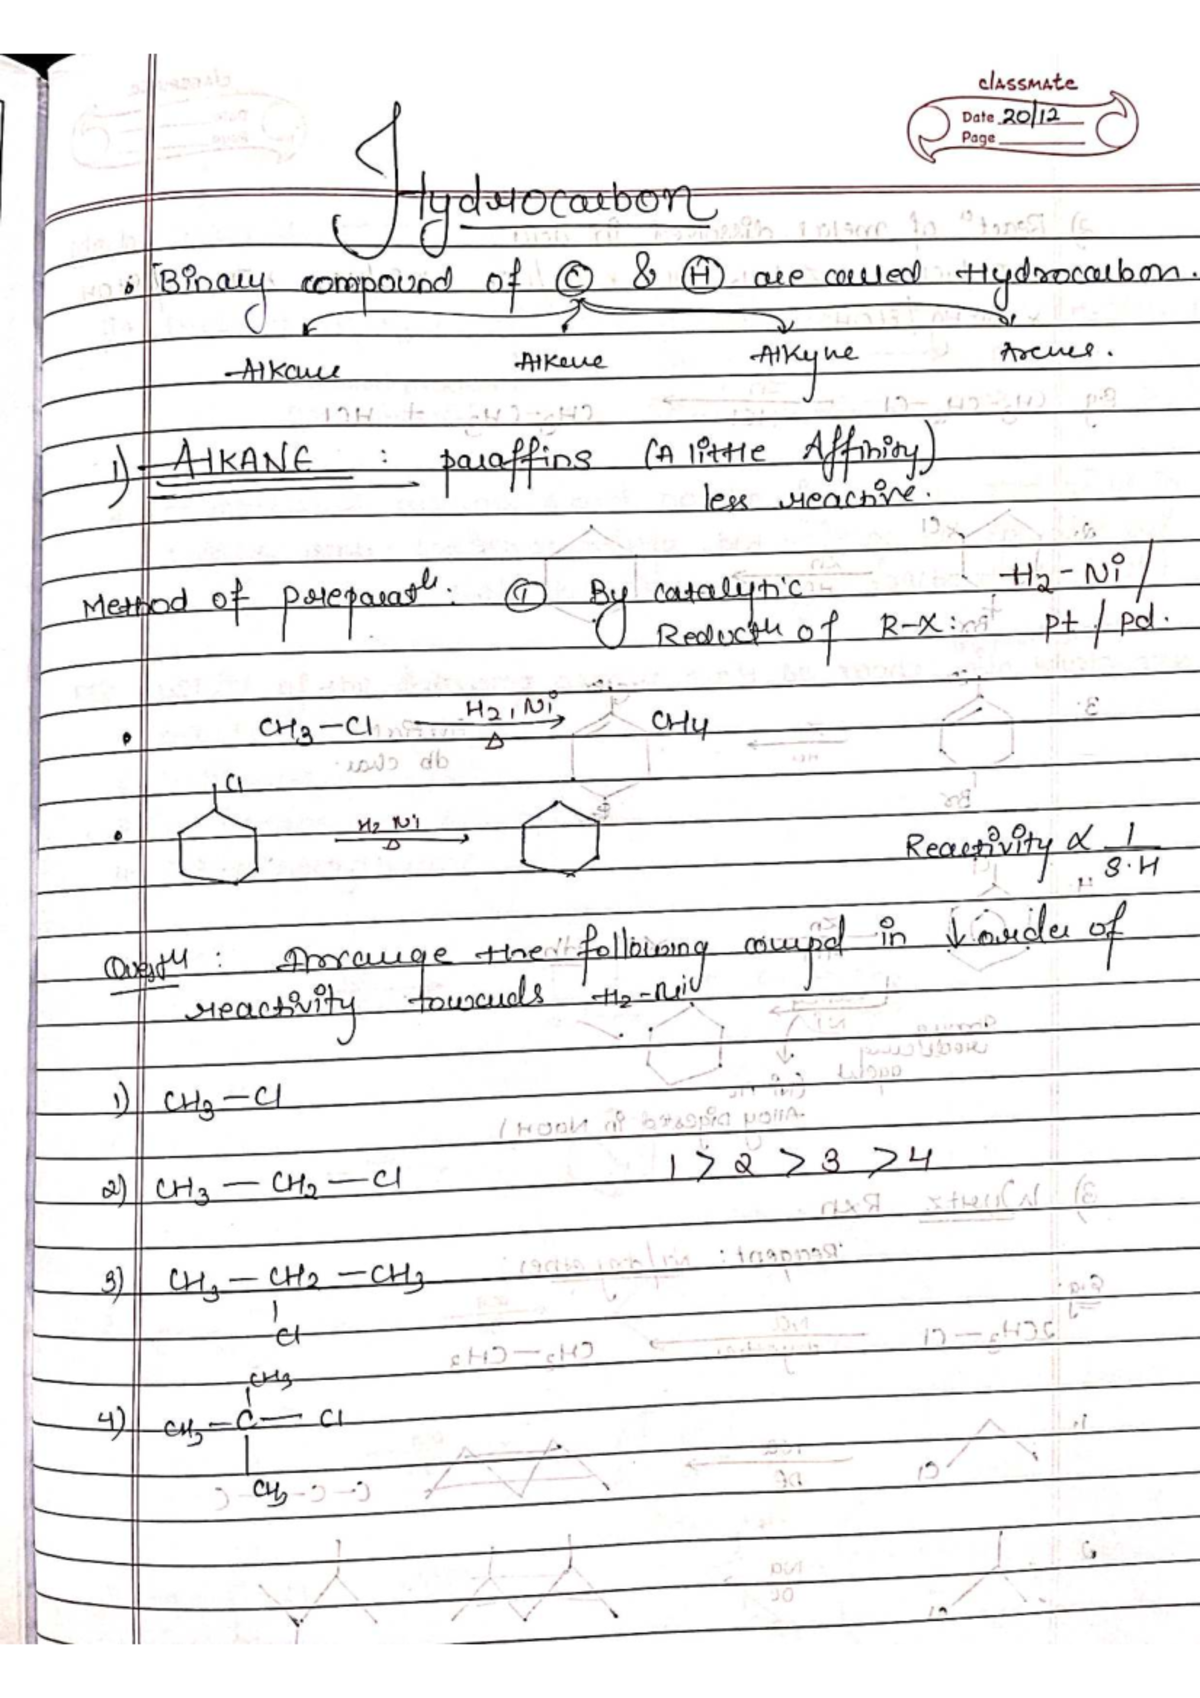 classmate
Date 20/12
Page
Hydrocarbon
• Binary compound of C & H are called Hydrocarbon.
Alkane Alkene Alkyne Arenes.
1) ALKANE : paraffins (A little Affinity)
less reactive.
Method of preparatⁿ: ① By catalytic H2-Ni/
Reductⁿ of R-X: Pt/Pd.
• CH3-Cl H2, Ni Δ CH4
Cl
• H2 Ni Δ
Reactivity ∝ 1/S.H
Questⁿ : Arrange the following compd in ↓ order of
reactivity towards H2-Ni
1) CH3-Cl
2) CH3-CH2-Cl 1>2>3>4
3) CH3-CH2-CH3
Cl
CH3
4) CH3-C-Cl
CH3